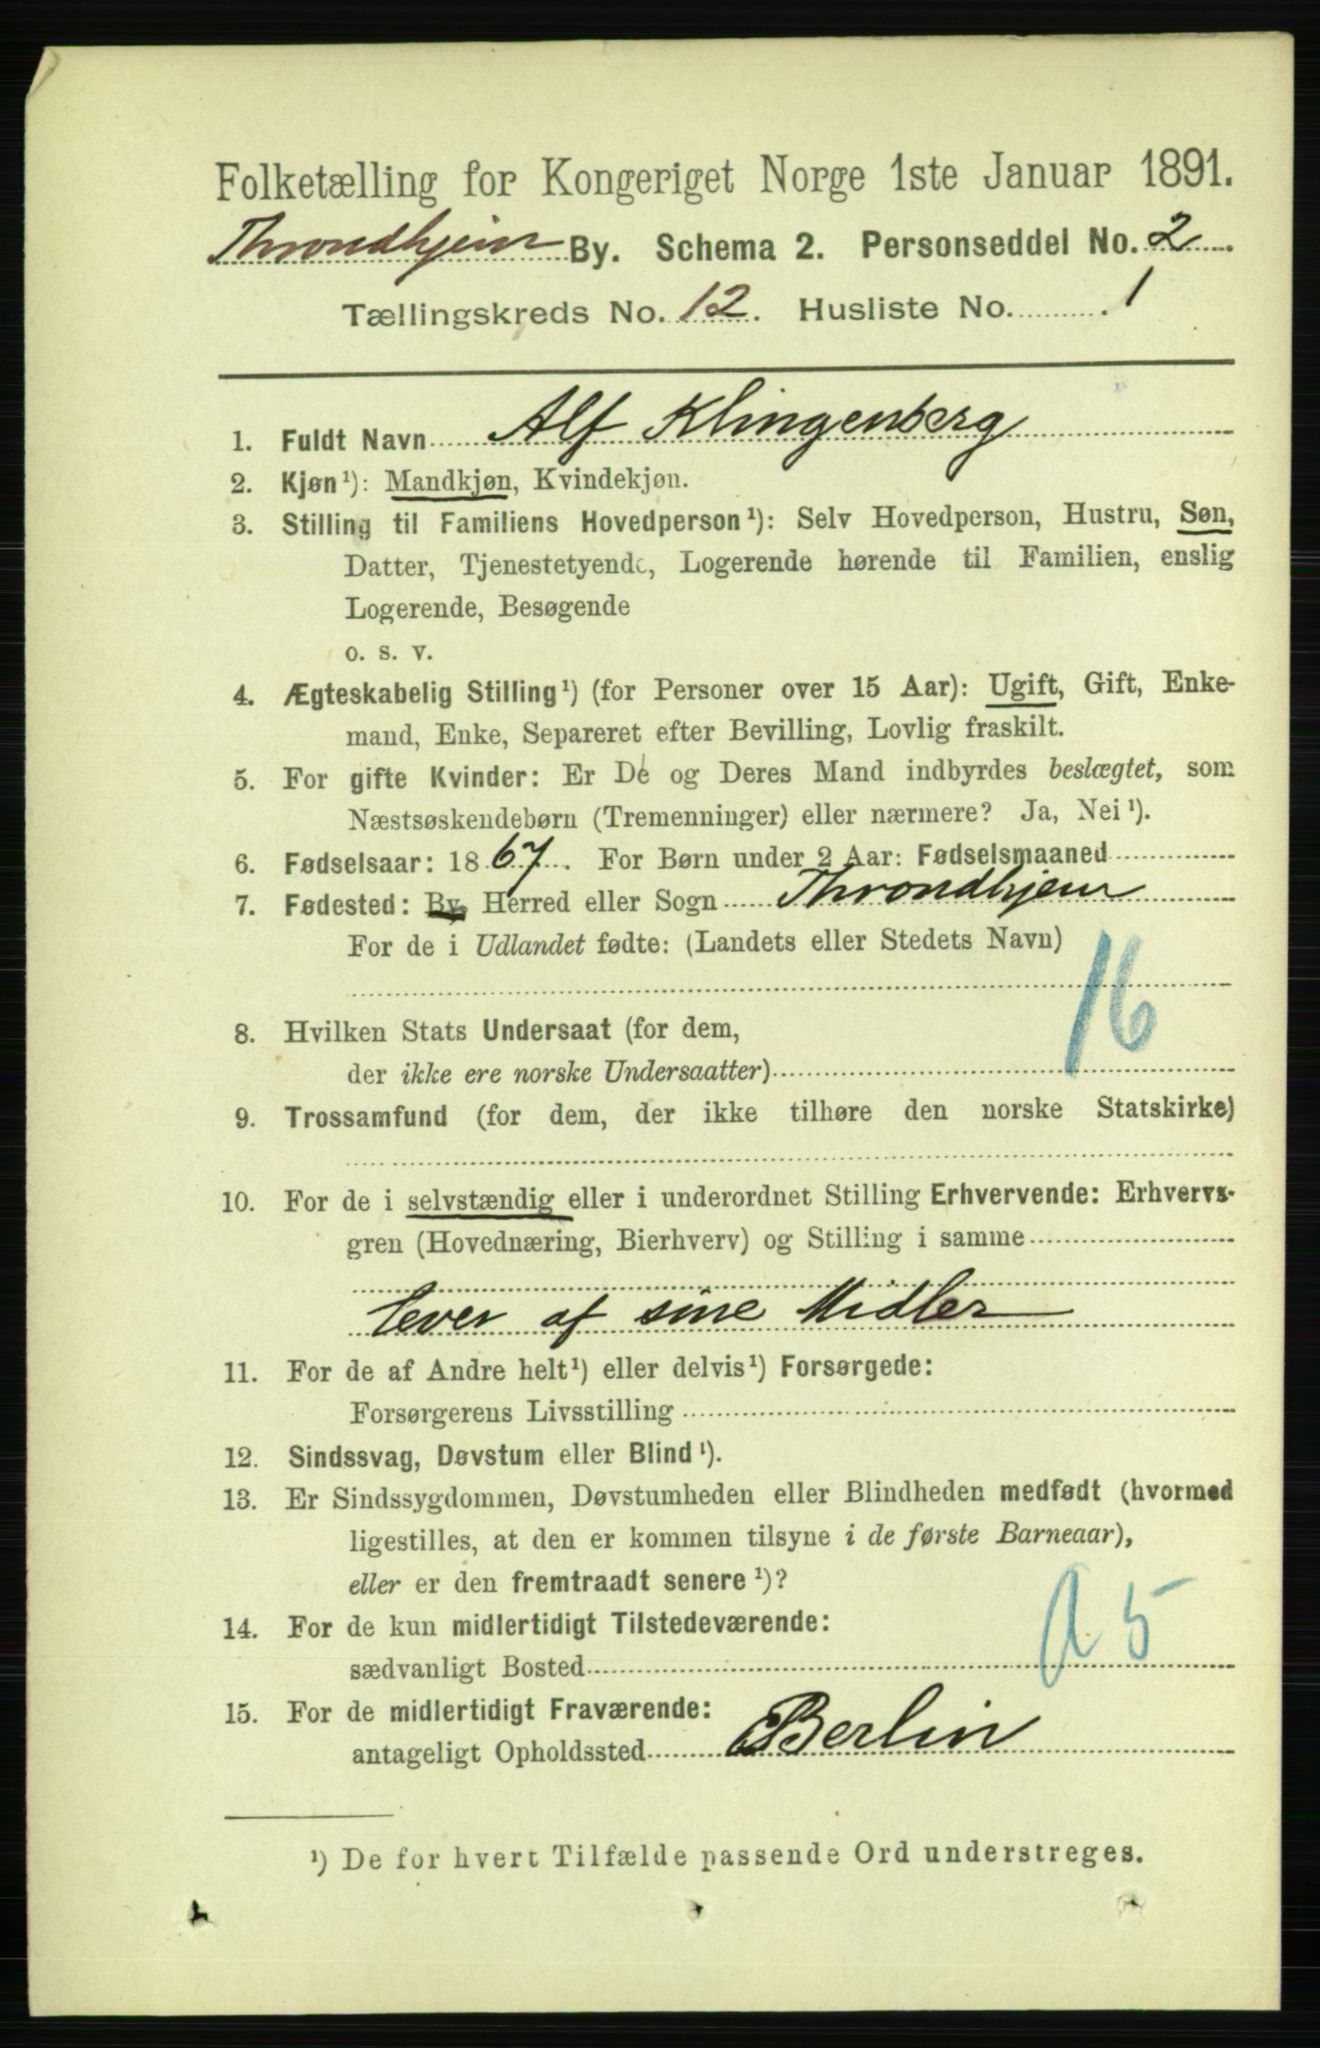 Folketælling for Kongeriget Norge 1ste Januar 1891.
Throndhjem By. Schema 2. Personseddel No. 2.
Tællingskreds No. 12. Husliste No. 1.
1. Fuldt Navn Alf Klingenberg
2. Kjøn¹): Mandkjøn, Kvindekjøn.
3. Stilling til Familiens Hovedperson¹): Selv Hovedperson, Hustru, Søn,
Datter, Tjenestetyende, Logerende hørende til Familien, enslig
Logerende, Besøgende
o. s. v.
4. Ægteskabelig Stilling¹) (for Personer over 15 Aar): Ugift, Gift, Enke-
mand, Enke, Separeret efter Bevilling, Lovlig fraskilt.
5. For gifte Kvinder: Er De og Deres Mand indbyrdes beslægtet, som
Næstsøskendebørn (Tremenninger) eller nærmere? Ja, Nei¹).
6. Fødselsaar: 1867. For Børn under 2 Aar: Fødselsmaaned
7. Fødested: By, Herred eller Sogn Throndhjem
For de i Udlandet fødte: (Landets eller Stedets Navn)
16
8. Hvilken Stats Undersaat (for dem,
der ikke ere norske Undersaatter)
9. Trossamfund (for dem, der ikke tilhøre den norske Statskirke)
10. For de i selvstændig eller i underordnet Stilling Erhvervende: Erhvervs-
gren (Hovednæring, Bierhverv) og Stilling i samme
lever af sine Midler
11. For de af Andre helt¹) eller delvis¹) Forsørgede:
Forsørgerens Livsstilling
12. Sindssvag, Døvstum eller Blind¹).
13. Er Sindssygdommen, Døvstumheden eller Blindheden medfødt (hvormed
ligestilles, at den er kommen tilsyne i de første Barneaar),
eller er den fremtraadt senere¹)?
14. For de kun midlertidigt Tilstedeværende:
sædvanligt Bosted
a 5
15. For de midlertidigt Fraværende:
antageligt Opholdssted Berlin
¹) De for hvert Tilfælde passende Ord understreges.